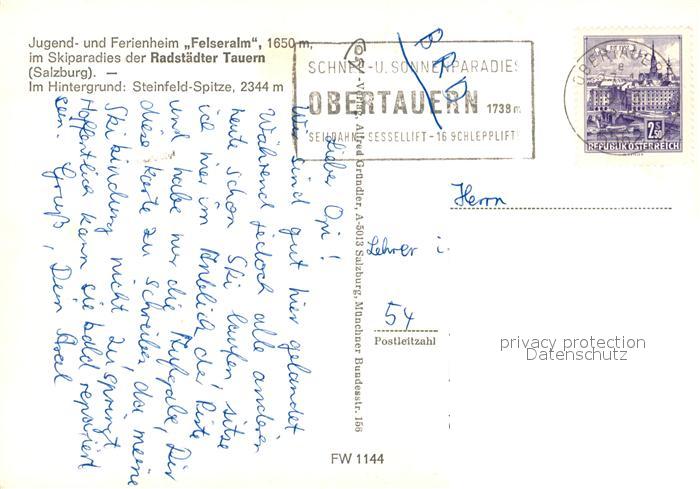 Jugend- und Ferienheim „Felseralm“, 1650 m,
im Skiparadies der Radstädter Tauern
(Salzburg). —
Im Hintergrund: Steinfeld-Spitze, 2344 m
SCHNEE-U.SONNENPARADIES
OBERTAUERN 1738 m
SEILBAHN-SESSELLIFT-16 SCHLEPPLIFT
BRD
OBERTAUERN
2.50
REPUBLIK ÖSTERREICH
Lieber Opi!
Wir sind gut hier gelandet
Während jedoch alle anderen
heute schon Ski laufen sitze
ich hier im Anblick der Piste
und habe nur die Aufgabe, Dir
diese Karte zu schreiben, da meine
Skibindung nicht zuspringt
Hoffentlich kann sie bald repariert
sein. Gruß, Dein Axel
-Verlag, Alfred Gründler, A-5013 Salzburg, Münchner Bundesstr. 156
Herrn
Lehrer i.
54
Postleitzahl
privacy protection
Datenschutz
FW 1144